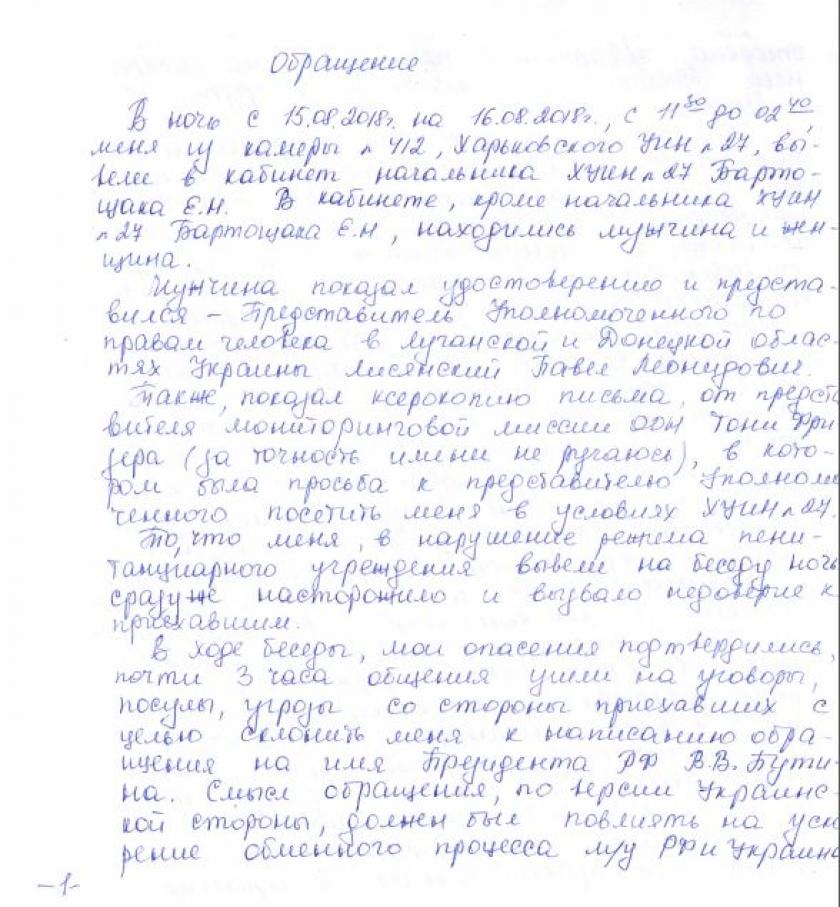 Обращение.
В ночь с 15.08.2018г. на 16.08.2018г., с 11³⁰ до 02⁴⁰,
меня из камеры №412, Харьковского УИН №27, вы-
вели в кабинет начальника ХУИН №27 Барто-
щака Е.Н. В кабинете, кроме начальника ХУИН
№27 Бартощака Е.Н, находились мужчина и жен-
щина.
Мужчина показал удостоверение и предста-
вился – Представитель Уполномоченного по
правам человека в Луганской и Донецкой облас-
тях Украины Лисянский Павел Леонидович.
Также, показал ксерокопию письма, от предста
вителя мониторинговой миссии ООН Тони Фри
зера (за точность имени не ручаюсь), в кото-
ром была просьба к представителю Уполномо
ченного посетить меня в условиях ХУИН №27.
То, что меня, в нарушение режима пени-
танциарного учреждения вывели на беседу ночь
сразу же насторожило и вызвало недоверие к
приехавшим.
В ходе беседы, мои опасения подтвердились,
почти 3 часа общения ушли на уговоры,
посулы, угрозы со стороны приехавших с
целью склонить меня к написанию обра-
щения на имя Президента РФ В.В. Пути-
на. Смысл обращения, по версии Украинс-
кой стороны, должен был повлиять на уск
рение обменного процесса м/у РФ и Украино
-1-